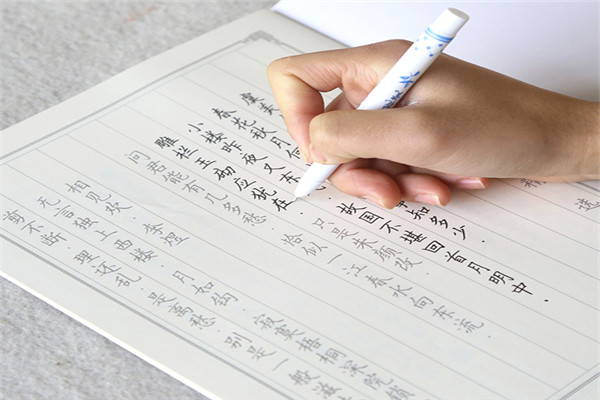 虞美
春花秋月何 知多少.
小楼昨夜又 故国不堪回首月明中.
雕栏玉砌应犹在. 只是朱颜改.
问君能有几多愁. 恰似一江春水向东流.
相见欢 李煜
无言独上西楼.月如钩.寂寞梧桐深院锁
剪不断.理还乱.是离愁.别是一般滋